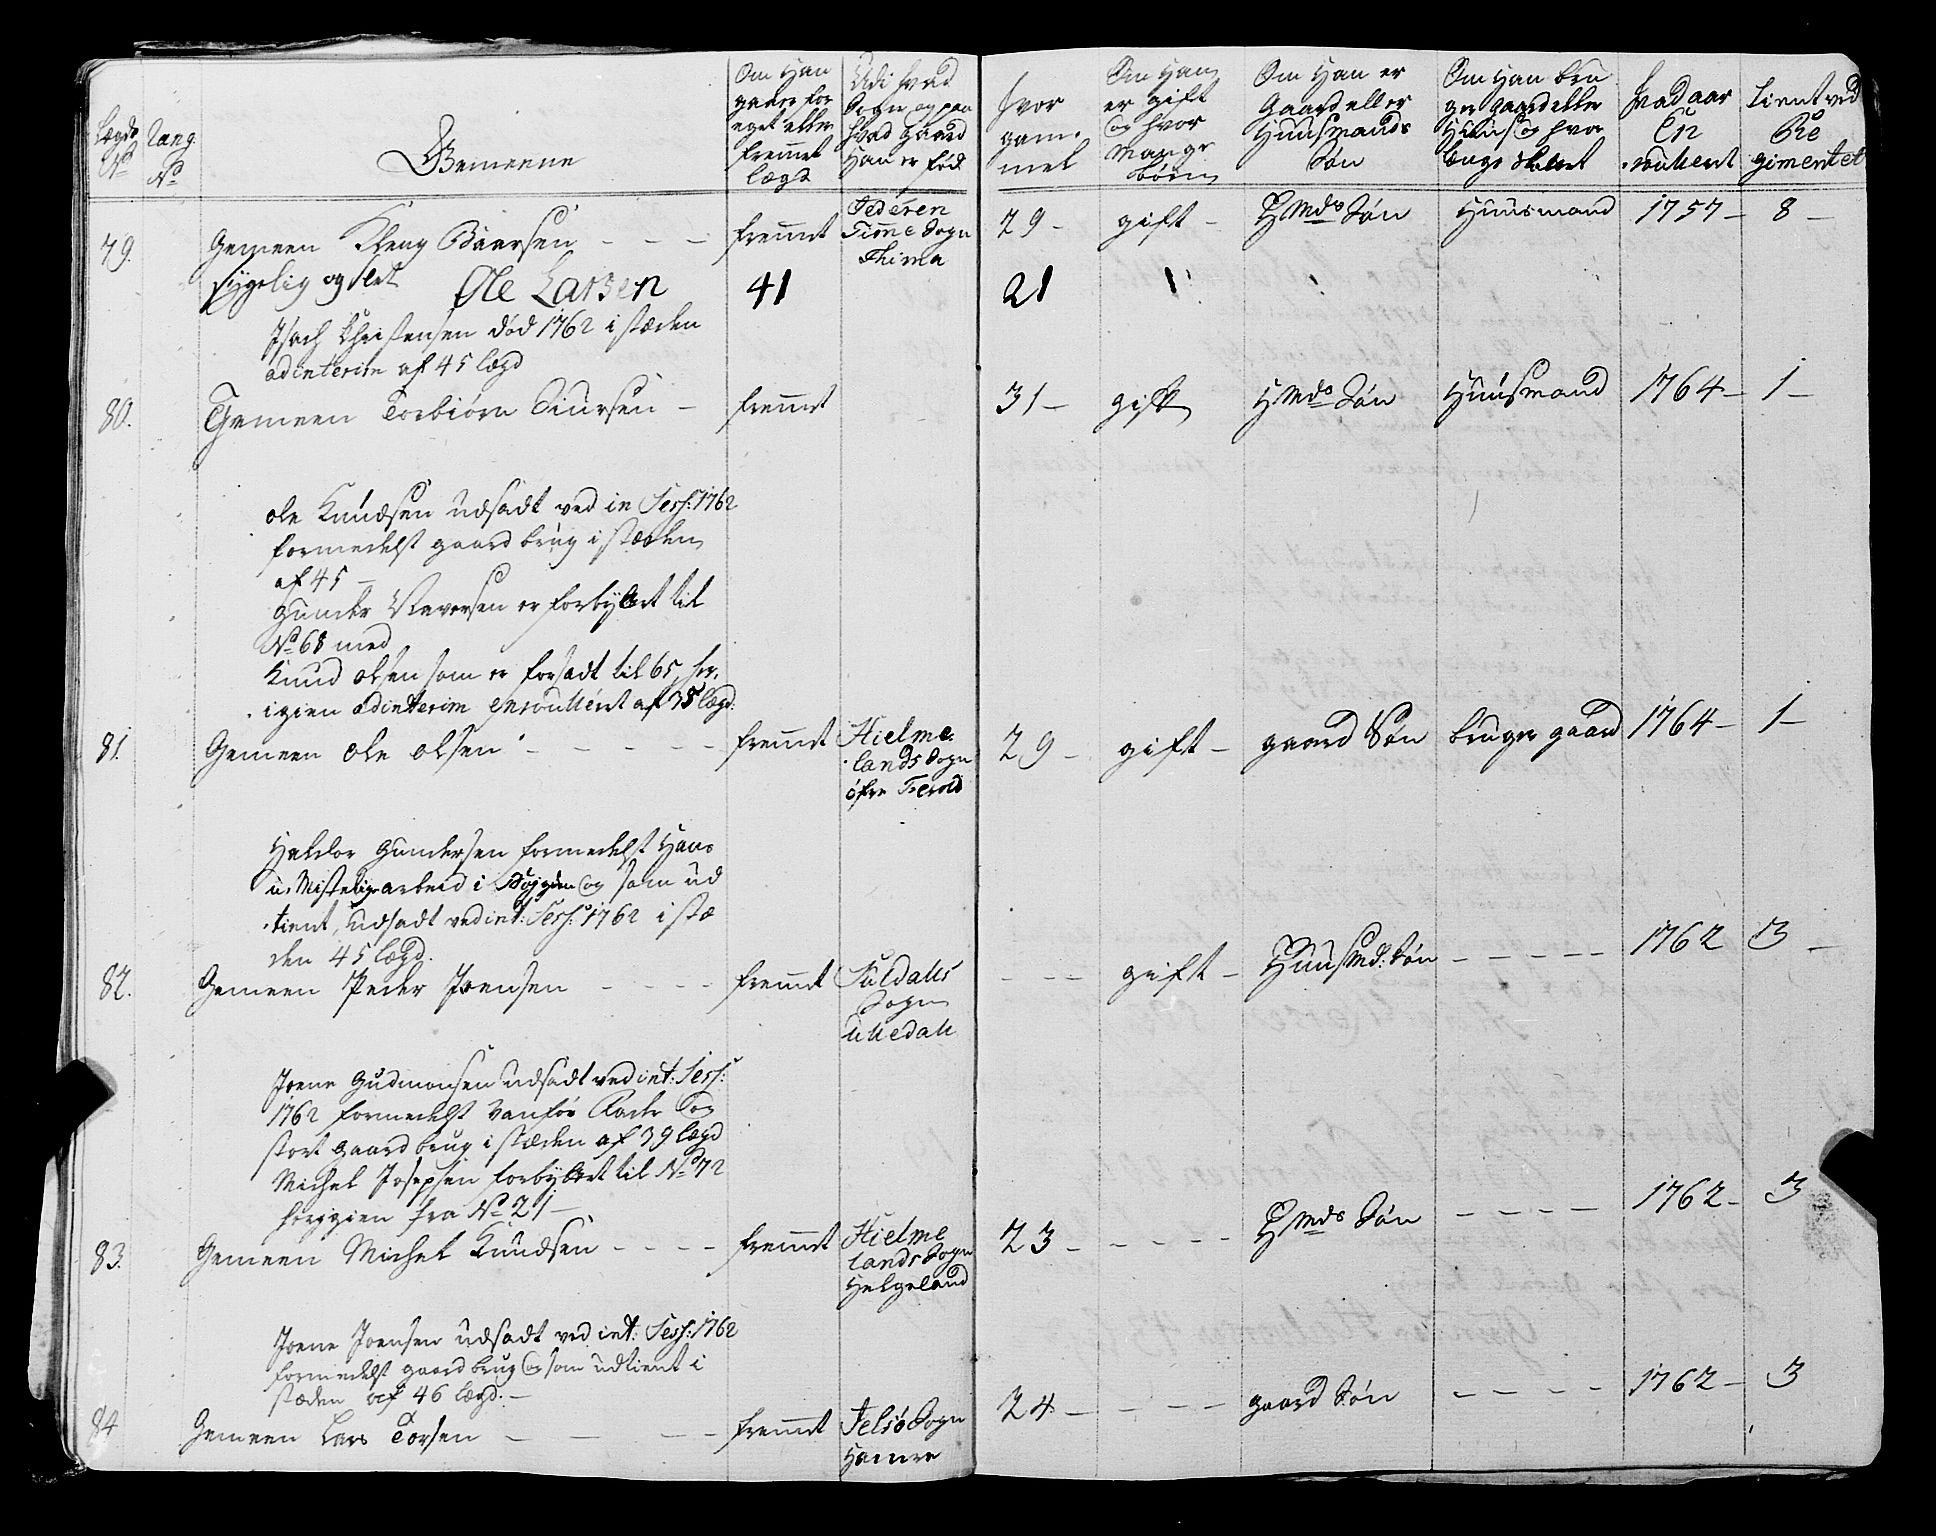 Lægds No
Rang No
Gemeene
Om Han
gaar for
eget eller
fremmet
lægd
Udi hvad
Sogn og paa
hvad gaard
Han er fød
hvor
gam-
mel
Om Han
er gift
og hvor
mange
børn
Om Han er
Gaard eller
Huusmands
Søn
Om Han bru
ger gaard eller
Huus og hvor
Hvad aar
En
roullert
tient ved
Re
gimentet
79. Gemeen Baarsen - - - fremmt Jederen Time Sogn Thime 29 - gift - H Mds Søn Huusmand 1757 - 8 -
sygelig og Ole Larsen 41 21 1
Isach Christensen død 1762 i stæden
ad interim af 45 lægd
80. Gemeen Torbiørn Siursen - fremmt 31 - gift H Mds Søn Huusmand 1764 - 1 -
ole Knudsen udsadt ved in Sess: 1762
formedelst gaard brug i stæden
af 45 -
Gunder er forbyttet til
No 68 med
Knud olsen som er forsadt til 65, her-
igien ad interim enroullert af 38 lægd:
81. Gemeen ole olsen - - - - - fremmt Hielme- lands Sogn øfre 29 - gift - gaard Søn bruger gaard 1764 - 1 -
Haldor Gundersen formedelst Hans
u-Mistelig arbeid i Bøygden og som ud
tient, udsadt ved int: Sess: 1762 i stæ
den 45 lægd.
82. Gemeen Peder Joensen - - - - fremmt Suldals Sogn - - - gift - Huusmd: Søn - - - - - 1762 3 -
Joene Gudmonsen udsadt ved int: Sess:
1762 formedelst vanfør og
stort gaard brug i stæden af 39 lægd
Michel Josepsen forbyttet til No 72
herigien fra No 21 -
83. Gemeen Michel Knudsen - - - - fremmt Hielme lands Sogn Helgeland 23 - - - - - H Mds Søn - - - - 1762 - 3
Joene Joensen udsadt ved int: Sess: 1762
formedelst gaard brug og som udtient i
stæden af 46 lægd. -
84 Gemeen Lars Torsen - - - - fremmt Jelsø Sogn Hamre 24 - - - - gaard Søn - - - - 1762 - 3